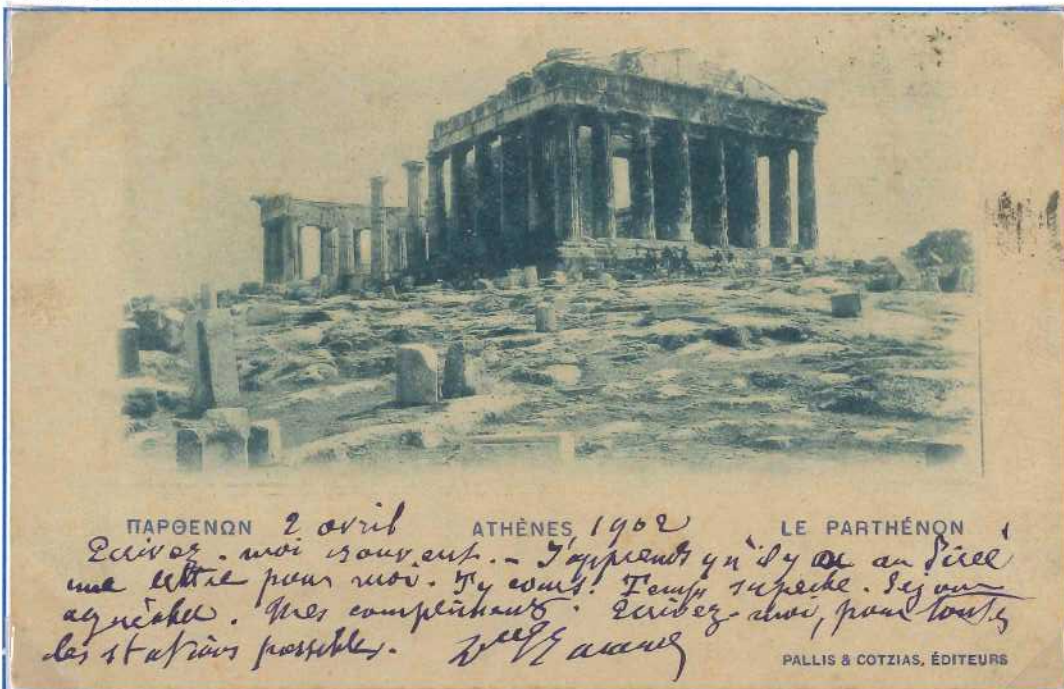 ΠΑΡΘΕΝΩΝ 2 avril ATHÈNES 1902 LE PARTHÉNON
Ecrivez-moi souvent. - J'apprends qu'il y a au
une lettre pour moi. J'y cours. Temps superbe. Séjour
agréable. Mes compliments. Ecrivez-moi, pour toutes
les stations possibles.
PALLIS & COTZIAS, ÉDITEURS